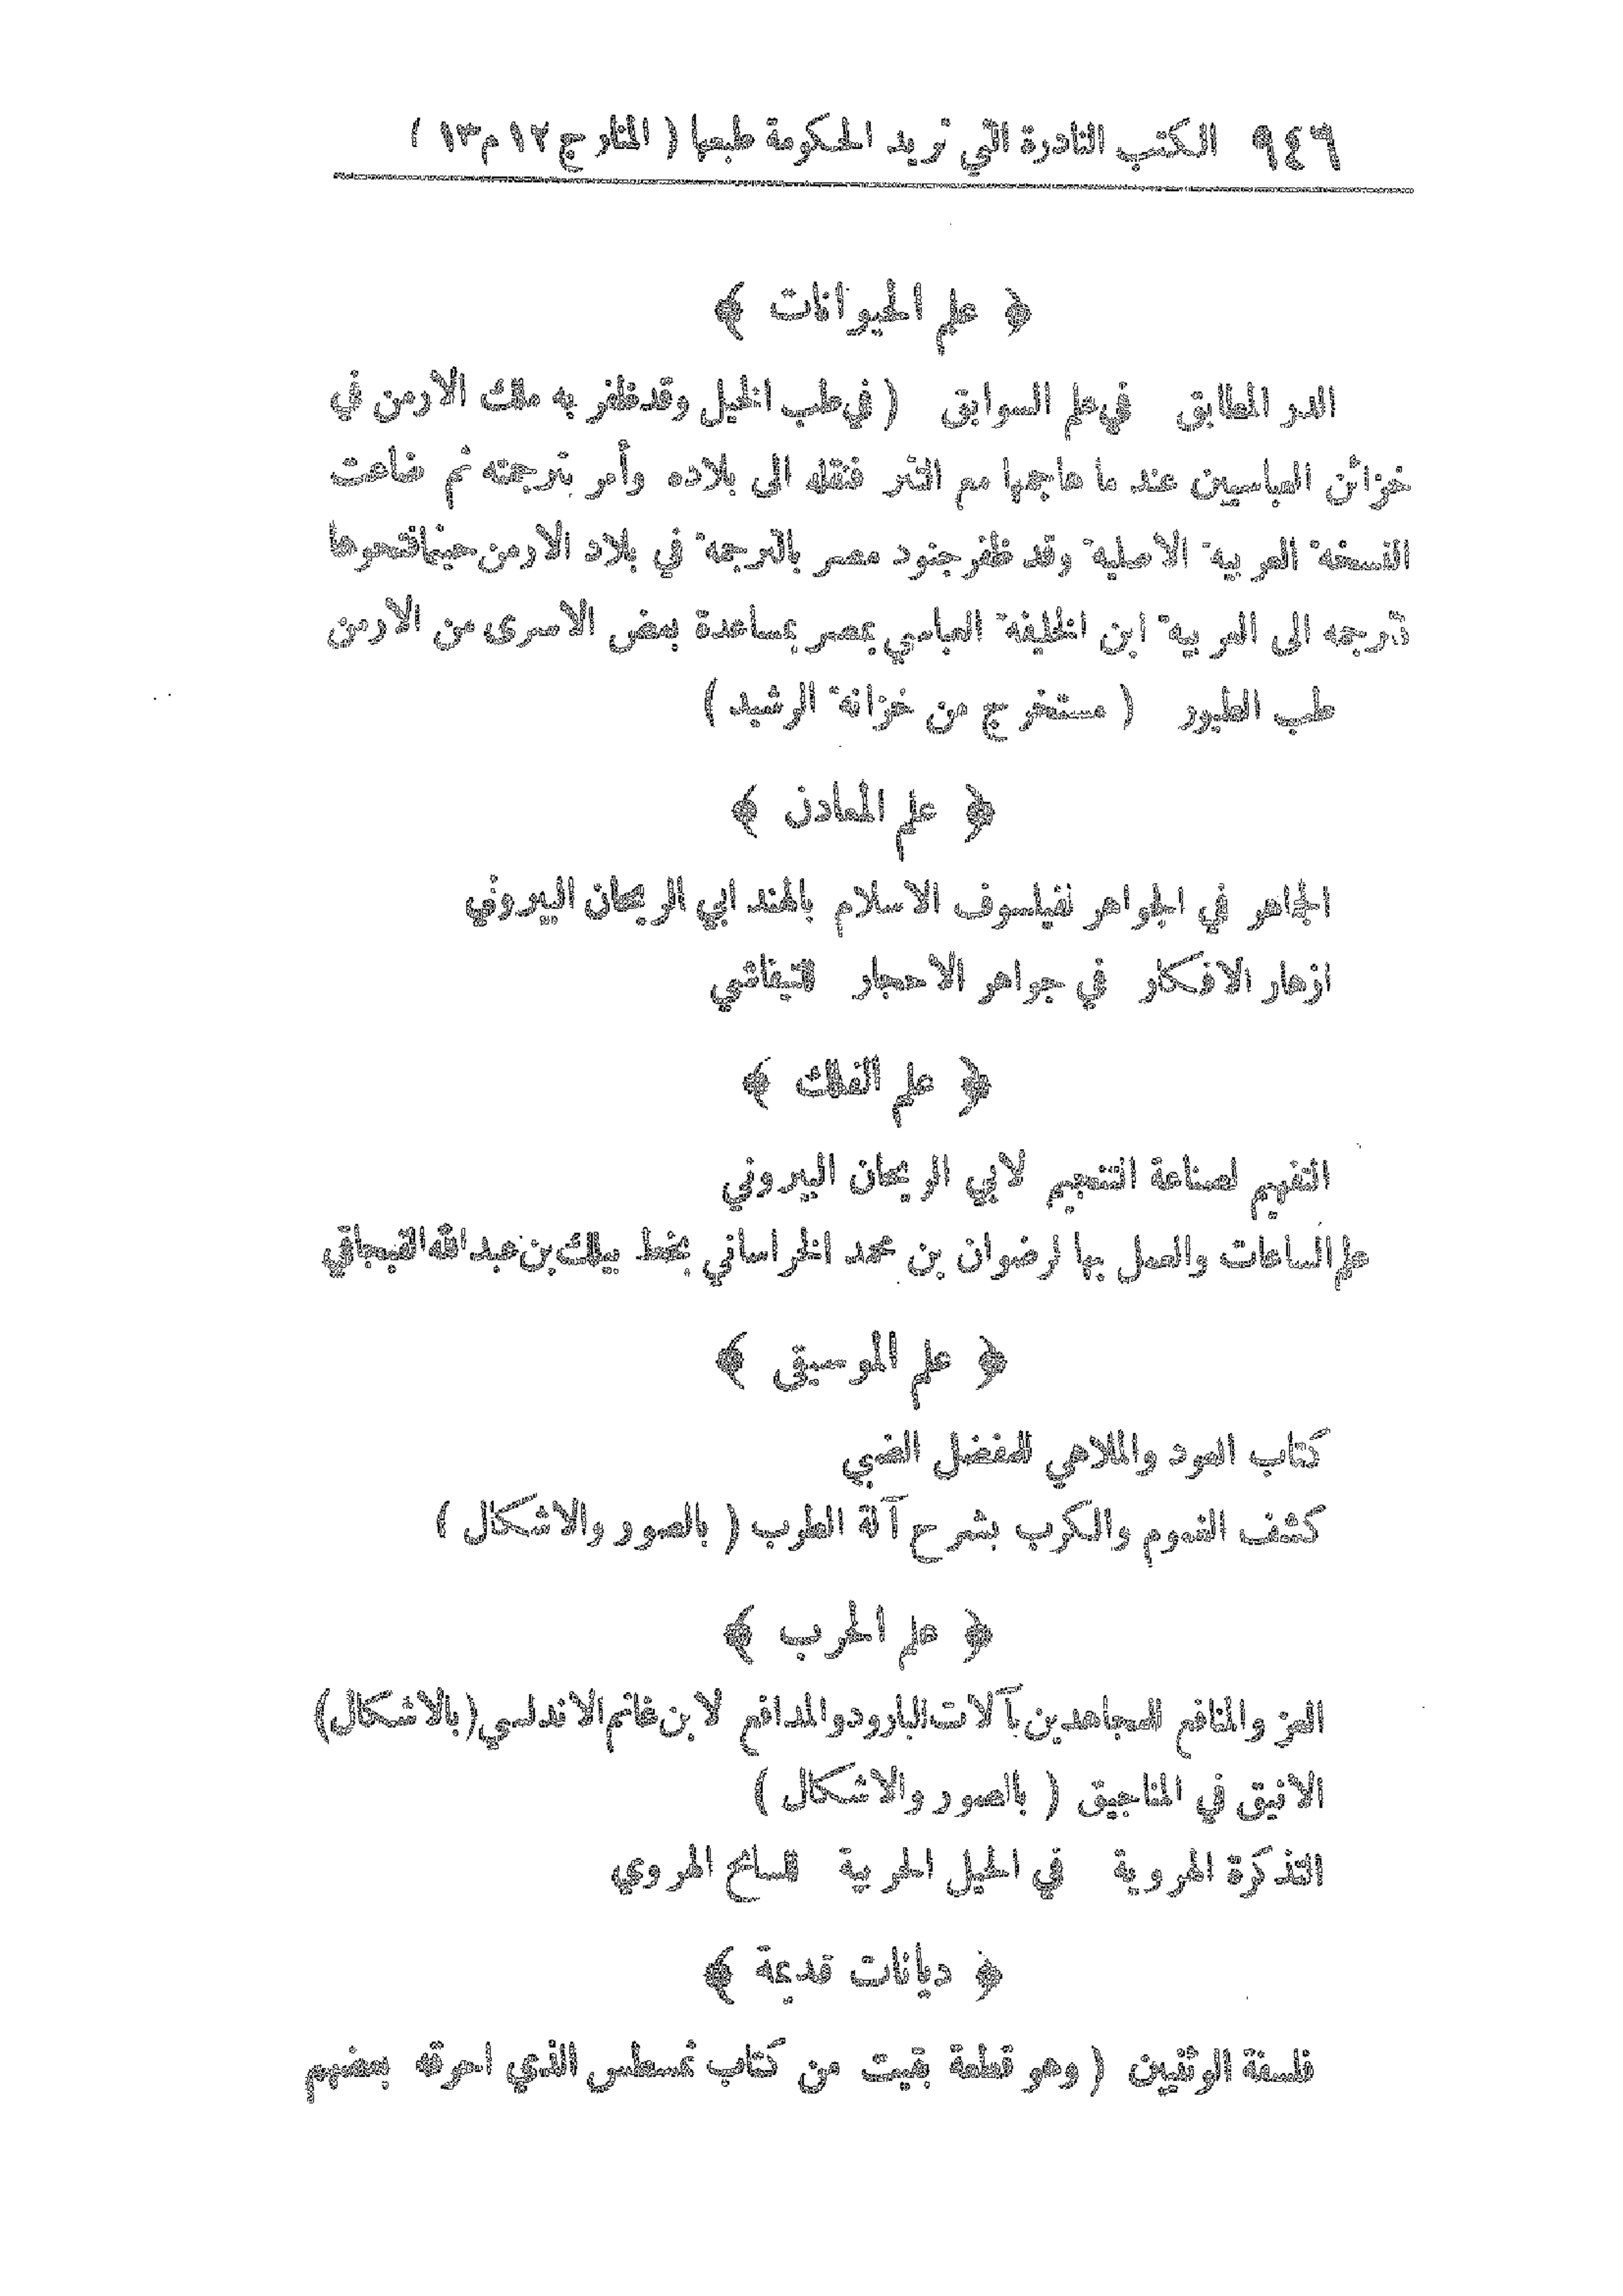 ٩٤٦ الكتب النادرة التي تريد الحكومة طبعها ( المنار ج ١٢ م ١٣ )
﴿ علم الحيوانات ﴾
الدر المطابق في علم السوابق ( في طب الخيل وقد ظفر به ملك الارمن في
خزائن العباسيين عند ما هاجمها مع التتر فنقله الى بلاده وأمر بترجمته ثم ضاعت
النسخة العربية الاصلية وقد ظفر جنود مصر بالترجمة في بلاد الارمن حينما فتحوها
ترجمه الى العربية ابن الخليفة العباسي بمصر بمساعدة بعض الاسرى من الارمن
طب الطيور ( مستخرج من خزانة الرشيد )
﴿ علم المعادن ﴾
الجماهر في الجواهر لفيلسوف الاسلام بالهند ابي الريحان البيروني
ازهار الافكار في جواهر الاحجار للتيفاشي
﴿ علم الفلك ﴾
التفهيم لصناعة التنجيم لابي الريحان البيروني
علم الساعات والعمل بها لرضوان بن محمد الخراساني بخط بيلك بن عبد الله القبجاقي
﴿ علم الموسيقى ﴾
كتاب العود والملاهي للمفضل الضبي
كشف الغموم والكرب بشرح آلة الطرب ( بالصور والاشكال )
﴿ علم الحرب ﴾
العز والمنافع للمجاهدين بآلات البارود والمدافع لابن غانم الاندلسي (بالاشكال)
الانيق في المناجيق ( بالصور والاشكال )
التذكرة الهروية في الحيل الحربية للسائح الهروي
﴿ ديانات قديمة ﴾
فلسفة الوثنيين ( وهو قطعة بقيت من كتاب غسطس الذي احرقه بعضهم